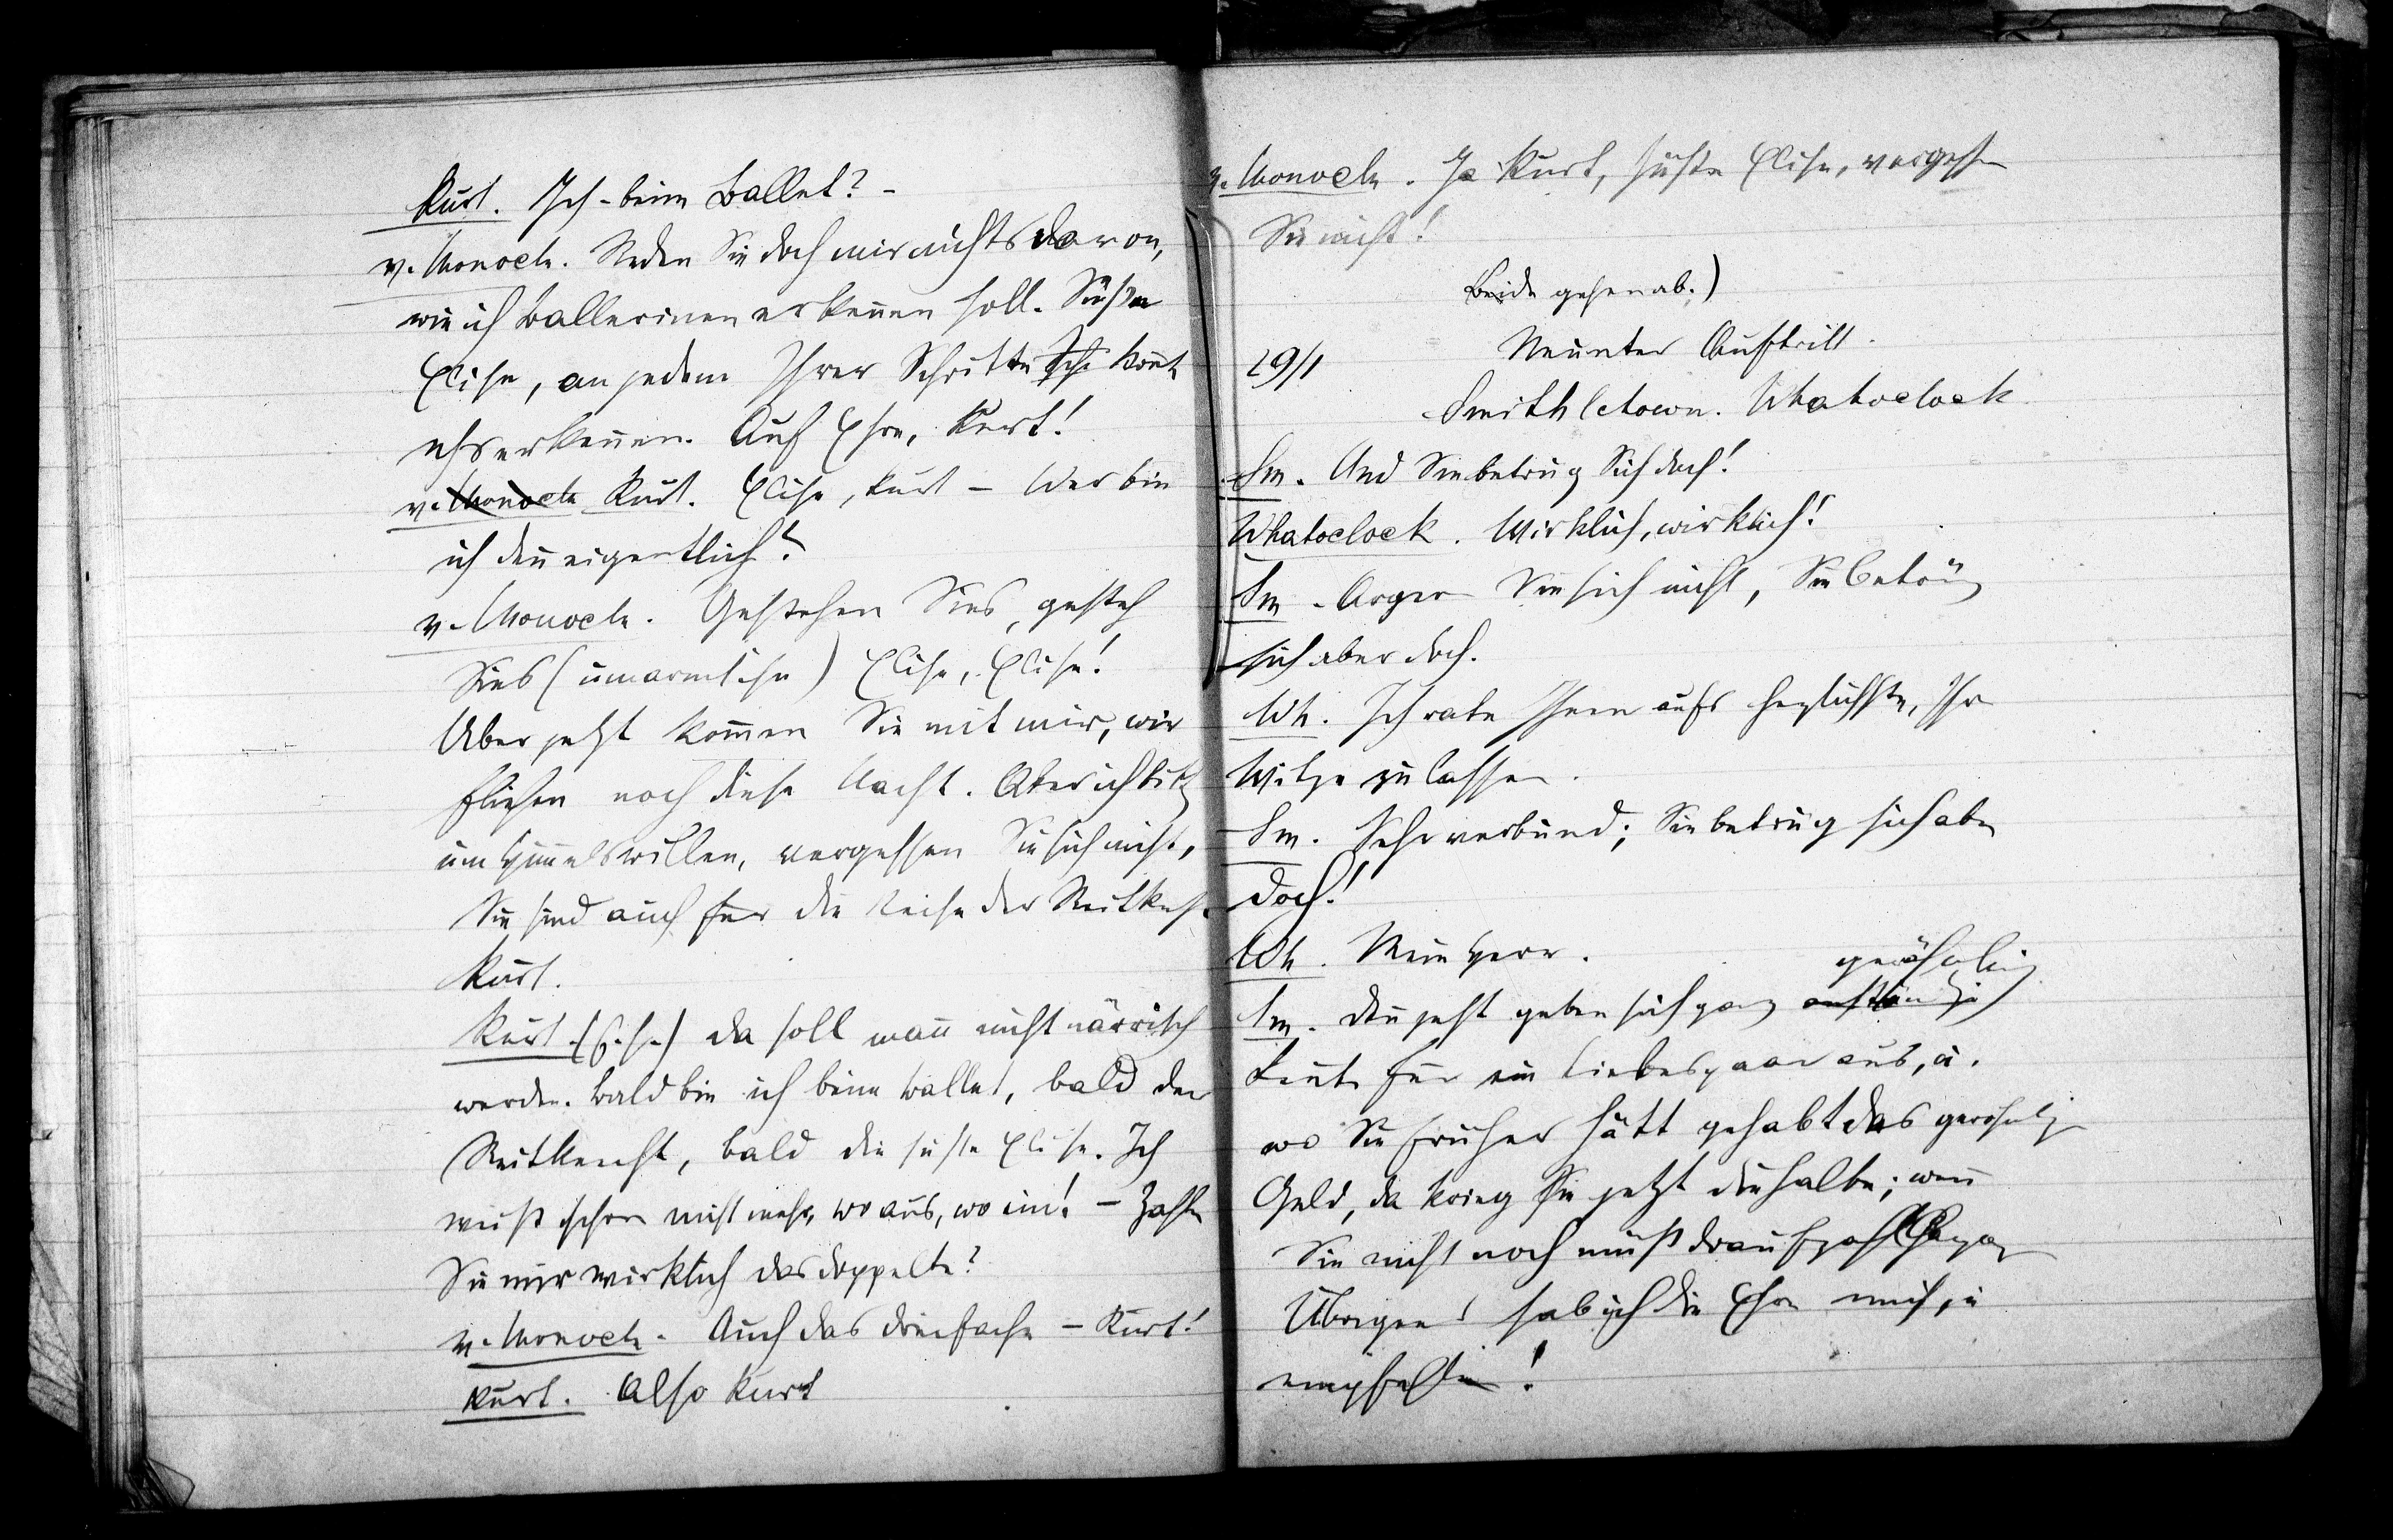 Kurt. Ich - beim Ballet? -
v. Monocle. Reden Sie doch mir nichts davon,
wie ich Ballerinen erkennen soll. Süße
Elise, an jedem Ihrer Schritte könnt
ichs erkennen. Auf Ehre, Kurt!
v. Monocle Kurt. Elise, Kurt - Wer bin
ich denn eigentlich?
v. Monocle. Gestehen Sies, gesteh
Sies (umarmt ihn) Elise, Elise!
Aber jetzt kommen Sie mit mir, wir
fliehen noch diese Nacht. Aber ich bitt
um Himmelswillen, vergessen Sie sich nicht,
Sie sind auch für die Reise der Reitknecht
Kurt.
Kurt. (f. s.) Da soll man nicht närrisch
werden. Bald bin ich beim Ballet, bald der
Reitknecht, bald die süße Elise. Ich
weiß schon nicht mehr, wo aus, wo ein! - Zahlen
Sie mir wirklich das doppelte?
v. Monocle. Auch das dreifache - Kurt!
Kurt. Also Kurt
v. Monocle. Ja Kurt, süße Elise, vergessen
Sie nicht!
Beide gehen ab.)
29/1 Neunter Auftritt.
Smithletown. Whatoclock
Sm. Und Sie betrüg sich doch!
Whatoclock. Wirklich, wirklich!
Sm. Ärgern Sie sich nicht, Sie betrüg
sich aber doch.
Wh. Ich rate Ihnen aufs herzlichste, Ihre
Witze zu lassen.
Sm. Sehr verbund; Sie betrüg sich aber
doch!
Wh. Mein Herr.
gewöhnlich
Sm. Denn jetzt geben sich ganz anständig
Leute für ein Liebespaar aus, u.
wo Sie früher hätt gehabt das gewöhnlich
Geld, da krieg Sie jetzt die halbe; wenn
Sie nicht noch muß draufzahl
Übrigens hab ich die Ehre mich zu
empfehlen!